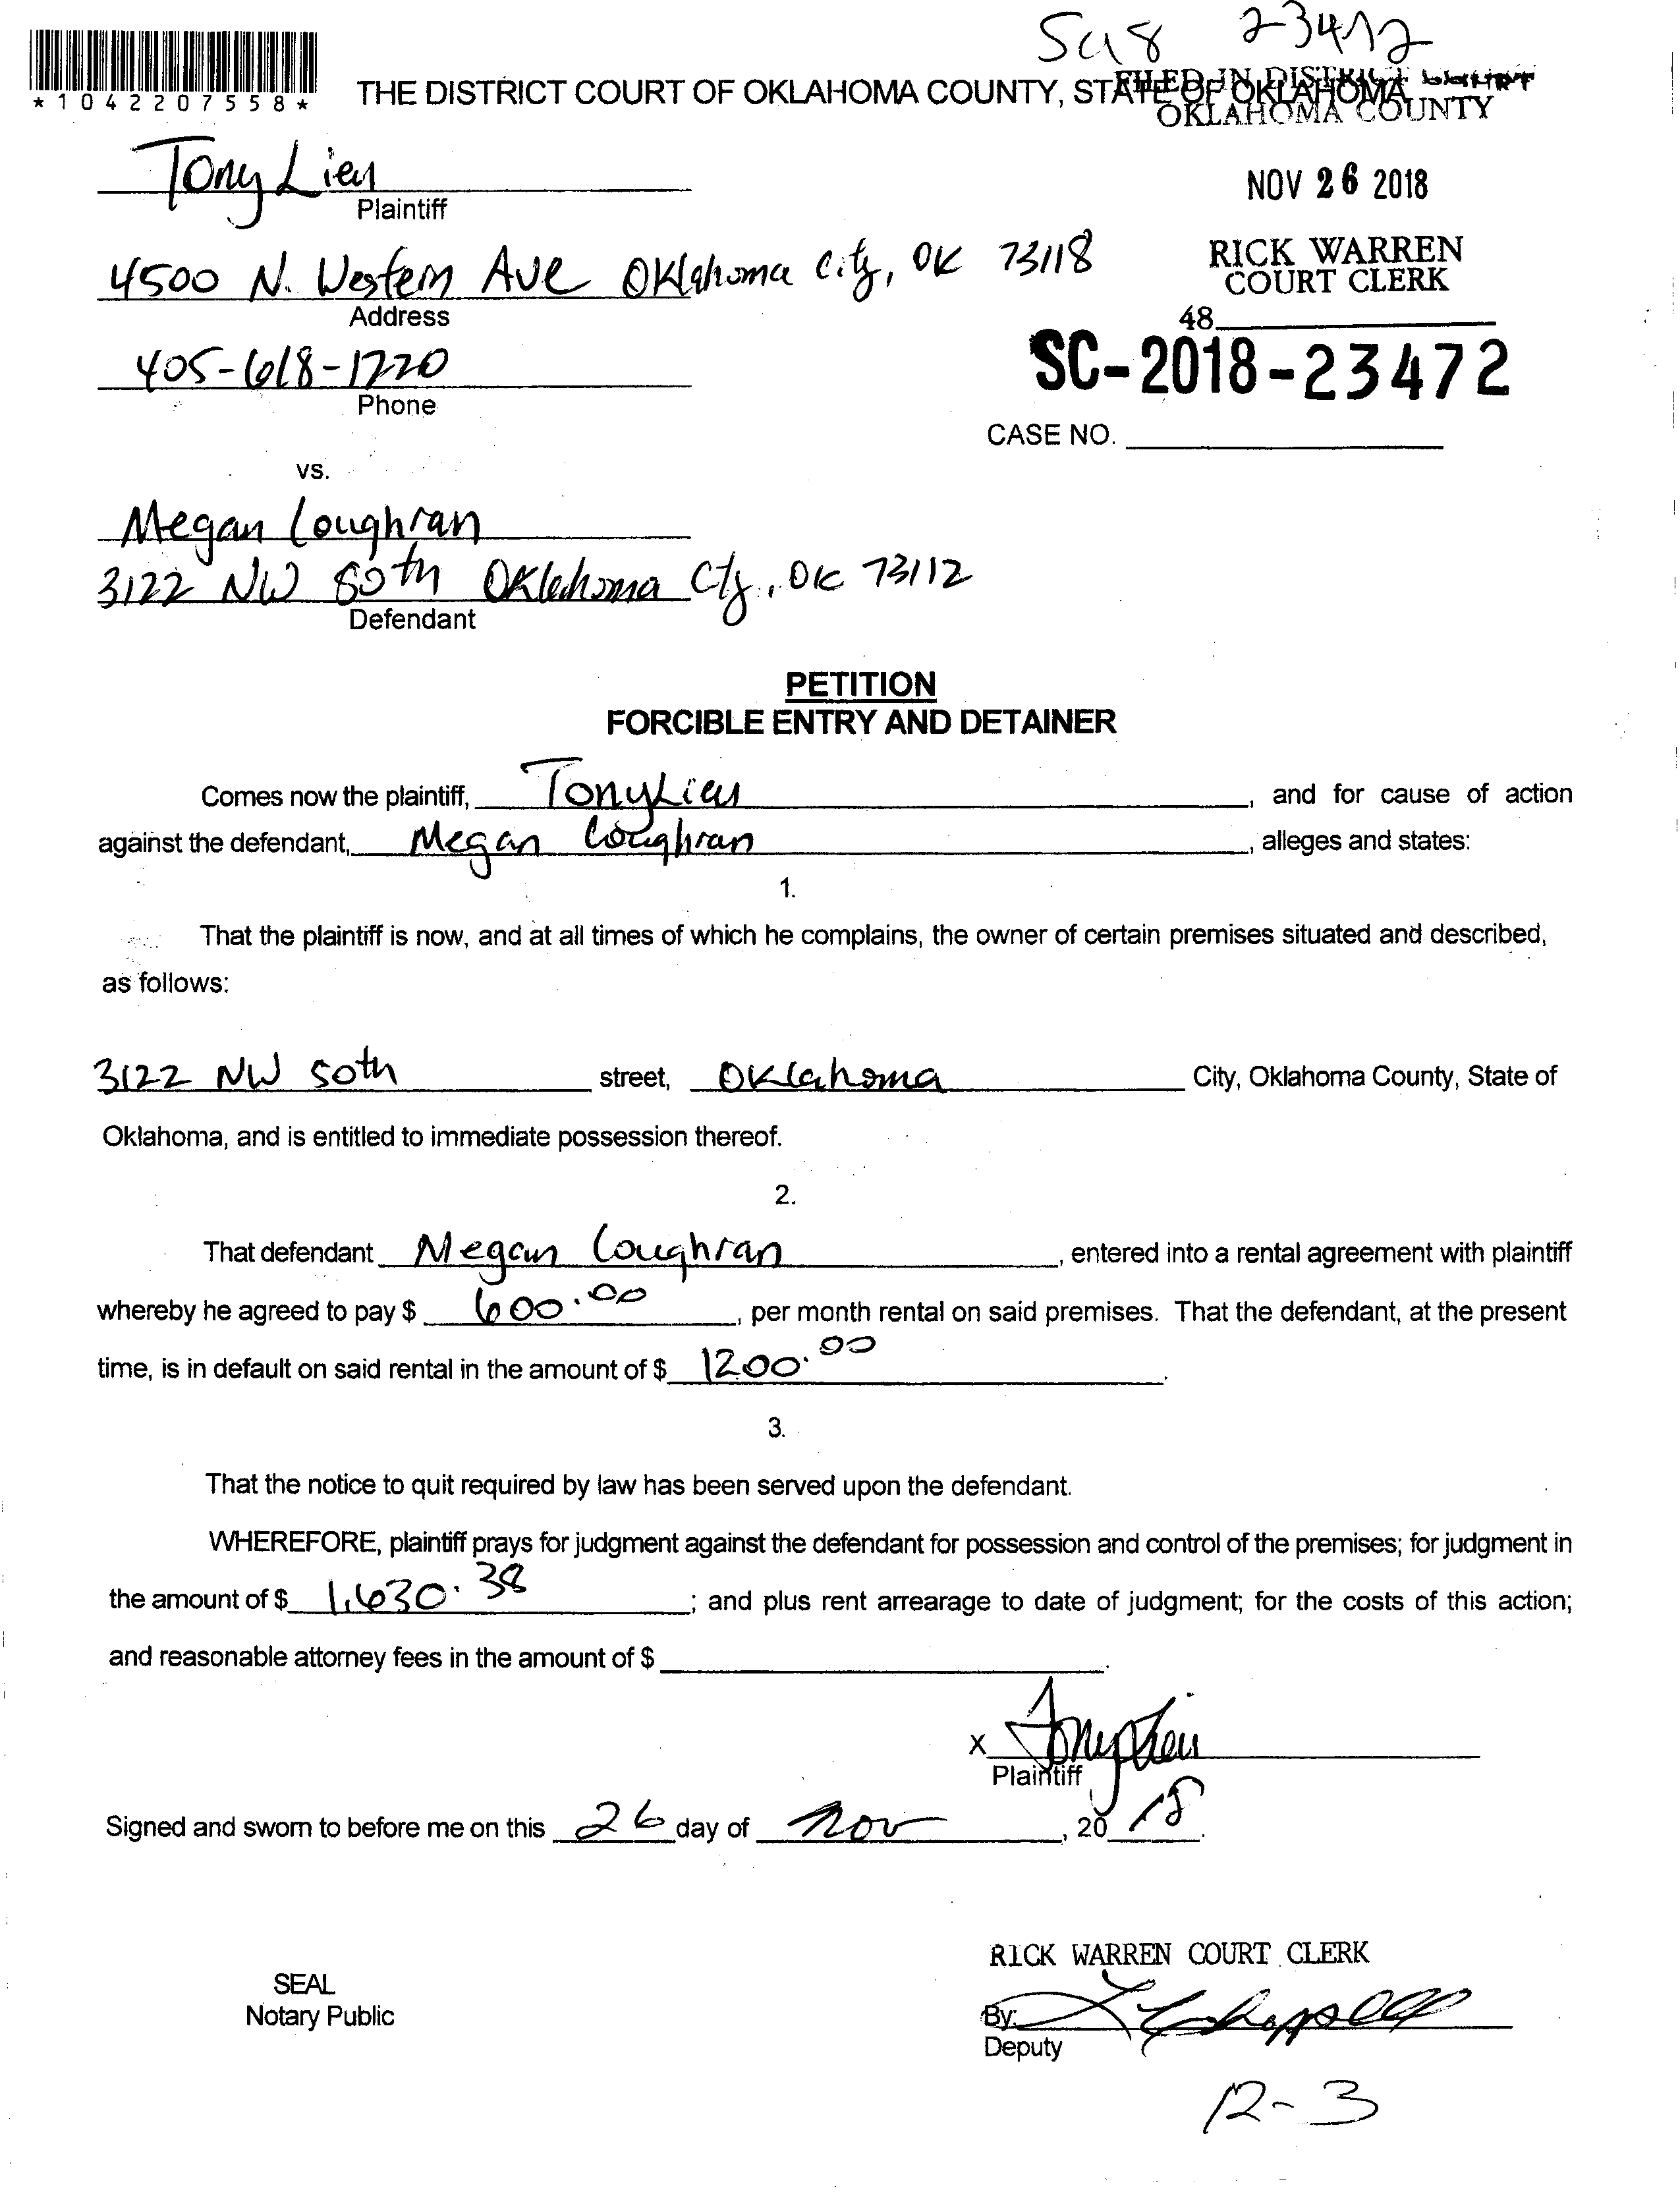 Sc18 23472
*1042207558*
THE DISTRICT COURT OF OKLAHOMA COUNTY, STATE OF OKLAHOMA
FILED IN DISTRICT COURT
OKLAHOMA COUNTY
Tony Lieu
Plaintiff
NOV 26 2018
4500 N. Western Ave Oklahoma City, OK 73118
RICK WARREN
COURT CLERK
Address
48
405-618-1720
SC-2018-23472
Phone
CASE NO.
vs.
Megan Loughran
3122 NW 50th Oklahoma Cty, OK 73112
Defendant
PETITION
FORCIBLE ENTRY AND DETAINER
Comes now the plaintiff, Tony Lieu, and for cause of action
against the defendant, Megan Loughran, alleges and states:
1.
That the plaintiff is now, and at all times of which he complains, the owner of certain premises situated and described,
as follows:
3122 NW 50th street, Oklahoma City, Oklahoma County, State of
Oklahoma, and is entitled to immediate possession thereof.
2.
That defendant Megan Loughran, entered into a rental agreement with plaintiff
whereby he agreed to pay $ 600.00, per month rental on said premises. That the defendant, at the present
time, is in default on said rental in the amount of $ 1200.00.
3.
That the notice to quit required by law has been served upon the defendant.
WHEREFORE, plaintiff prays for judgment against the defendant for possession and control of the premises; for judgment in
the amount of $ 1,630.38; and plus rent arrearage to date of judgment; for the costs of this action;
and reasonable attorney fees in the amount of $ .
X Tony Lieu
Plaintiff
Signed and sworn to before me on this 26 day of Nov, 20 18.
RICK WARREN COURT CLERK
SEAL
Notary Public
By:
Deputy
12-3